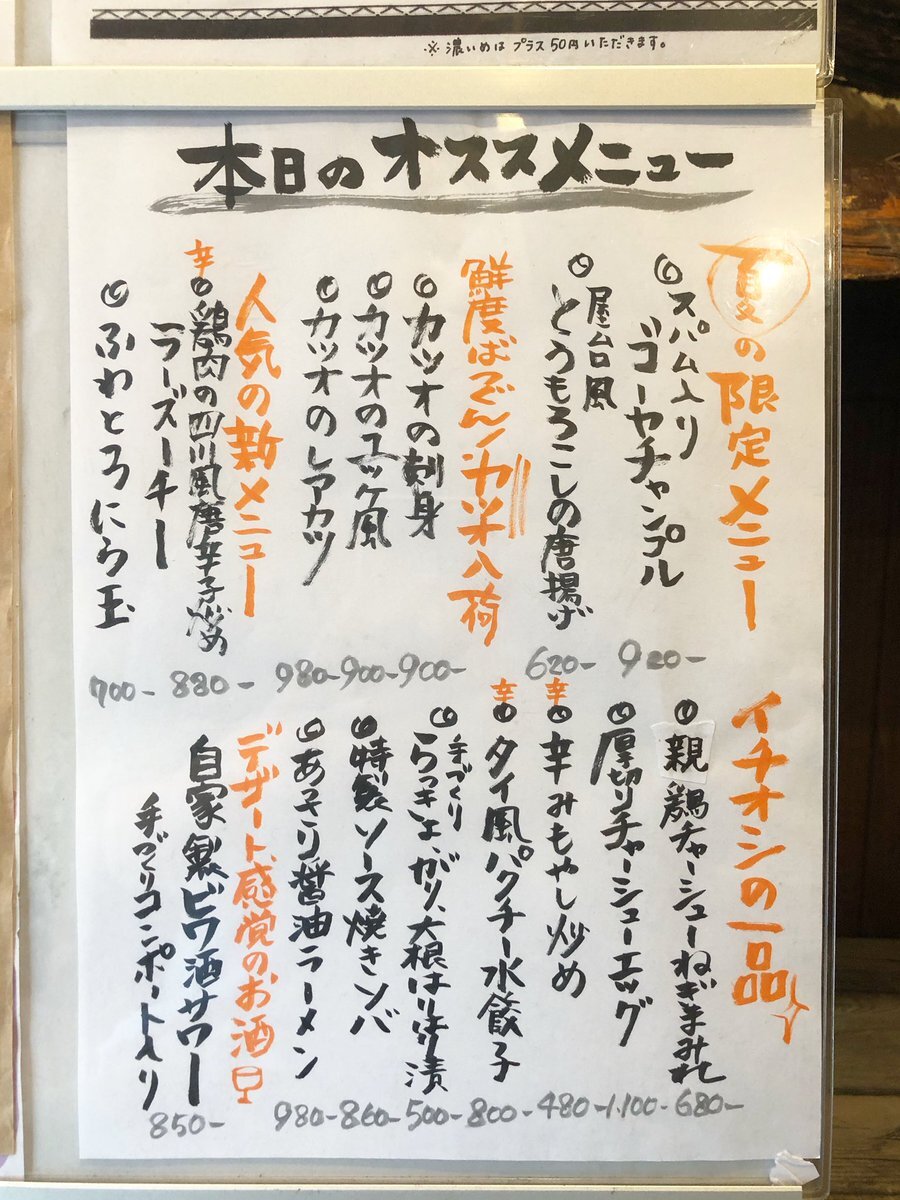 ※濃いめはプラス50円いただきます。
本日のオススメニュー
夏の限定メニュー
スパム入り
ゴーヤチャンプル
920-
屋台風
とうもろこしの唐揚げ
620-
鮮度ばつぐん!カツオ入荷
カツオの刺身
900-
カツオのユッケ風
900-
カツオのレアカツ
980-
人気の新メニュー
辛
鶏肉の四川風唐辛子炒め
ラーズーチー
880-
ふわとろにら玉
700-
イチオシの一品
親鶏チャーシューねぎまみれ
680-
厚切りチャーシューエッグ
1.100-
辛
辛みもやし炒め
480-
辛
タイ風パクチー水餃子
800-
手づくり
らっきょ、がり、大根はりはり漬
500-
特製ソース焼きソバ
860-
あっさり醤油ラーメン
980-
デザート感覚のお酒
自家製ビワ酒サワー
手づくりコンポート入り
850-